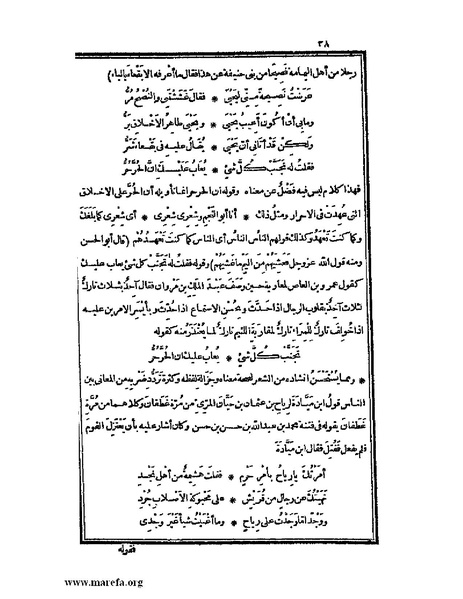 ٣٨
رجلا من أهل اليمامة فصيحا من بنى حنيفة عن هذا فقال ما أعرفه الا بقعاء بالباء)
عرضت نصيحة منى ليحيى * فقال غششتنى والنصح مر
ومابى أن أكون أعيب يحيى * ويحيى طاهر الأخلاق بر
ولكن قد أتانى أن يحيى * يقال عليه فى بقعاء شر
فقلت له تجنب كل شئ * يعاب عليك ان الحر حر
فهذا كلام ليس فيه فضل عن معناه وقوله ان الحر حر انما تأويله أن الحر على الاخلاق
التى عهدت فى الاحرار ومثل ذلك * أنا أبو النجم وشعرى شعرى * أى شعرى كما بلغك
وكما كنت تعهد وكذلك قولهم الناس الناس أى الناس كما كنت تعهدهم (قال أبو الحسن
ومنه قول الله عز وجل فغشيهم من اليم ما غشيهم) وقوله فقلت له تجنب كل شئ يعاب عليك
كقول عمرو بن العاص لمعاوية حين وصف عبد الملك بن مروان فقال آخذ بثلاث تارك
ثلاث آخذ بقلوب الرجال اذا حدث وبحسن الاستماع اذا حدث وبأيسر الامرين عليه
اذا خولف تارك للمراء تارك لمقاربة اللئيم تارك لما يعتذر منه كقوله
تجنب كل شئ * يعاب عليك ان الحر حر
* ومما يستحسن انشاده من الشعر لصحة معناه وجزالة لفظه وكثرة تردد ضربه من المعانى بين
الناس قول ابن ميادة لرياح بن عثمان بن حيان المرى من مرة غطفان وكلاهما من مرة
غطفان يقوله فى فتنة محمد بن عبد الله بن حسن بن حسن وكان أشار عليه بأن يعتزل القوم
فلم يفعل فقتل فقال ابن ميادة
أمرتك يا رياح بأمر حزم * فقلت هشيمة من أهل نجد
نهيتك عن رجال من قريش * على محبوكة الأصلاب جرد
ووجدا ما وجدت على رياح * وما أغنيت شيأ غير وجدى
فقوله
www.marefa.org